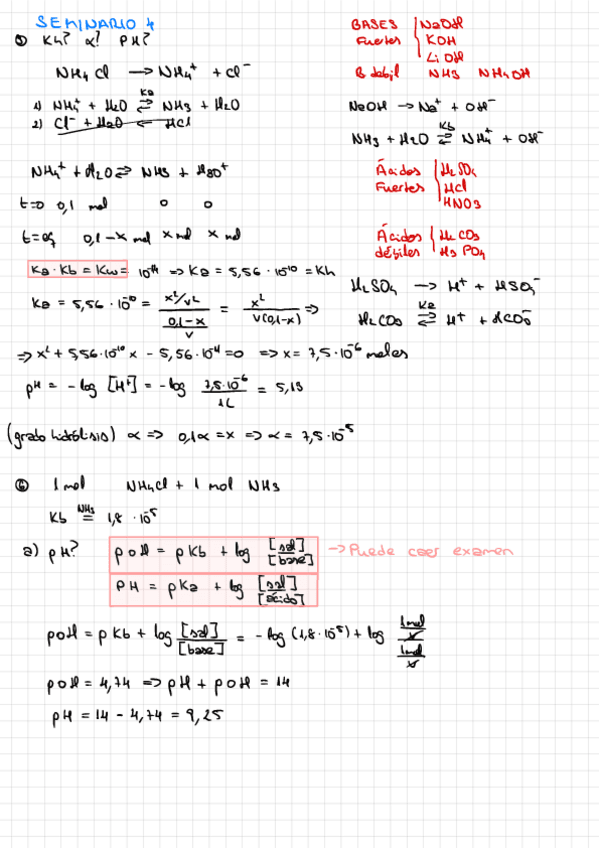 SEMINARIO 4
⑤ Kh? α? PH?
NH4Cl → NH4⁺ + Cl⁻
1) NH4⁺ + H2O ⇌ NH3 + H2O
Ka
2) Cl⁻ + H2O ← HCl
NH4⁺ + H2O ⇌ NH3 + H3O⁺
t=0 0,1 mol 0 0
t=eq 0,1-x mol x mol x mol
Ka · Kb = Kw = 10⁻¹⁴ ⇒ Ka = 5,56 · 10⁻¹⁰ = Kh
Ka = 5,56 · 10⁻¹⁰ = (x²/v²) / ((0,1-x)/v) = x² / (V(0,1-x)) ⇒
⇒ x² + 5,56·10⁻¹⁰ x - 5,56·10⁻¹¹ = 0 ⇒ x = 7,5·10⁻⁶ moles
pH = -log [H⁺] = -log (7,5·10⁻⁶ / 1L) = 5,13
(grado hidrólisis) α ⇒ 0,1α = x ⇒ α = 7,5·10⁻⁵
BASES Fuertes
NaOH
KOH
LiOH
B debil NH3 NH4OH
NaOH → Na⁺ + OH⁻
NH3 + H2O ⇌ NH4⁺ + OH⁻
Kb
Ácidos Fuertes
H2SO4
HCl
HNO3
Ácidos débiles
H2CO3
H3PO4
H2SO4 → H⁺ + HSO4⁻
H2CO3 ⇌ H⁺ + HCO3⁻
Ka
⑥ 1 mol NH4Cl + 1 mol NH3
Kb = 1,8 · 10⁻⁵
NH3
a) pH? pOH = pKb + log [sal]/[base] → Puede caer examen
PH = pKa + log [sal]/[ácido]
pOH = pKb + log [sal]/[base] = -log (1,8·10⁻⁵) + log (1mol/v)/(1mol/v)
pOH = 4,74 ⇒ pH + pOH = 14
pH = 14 - 4,74 = 9,25